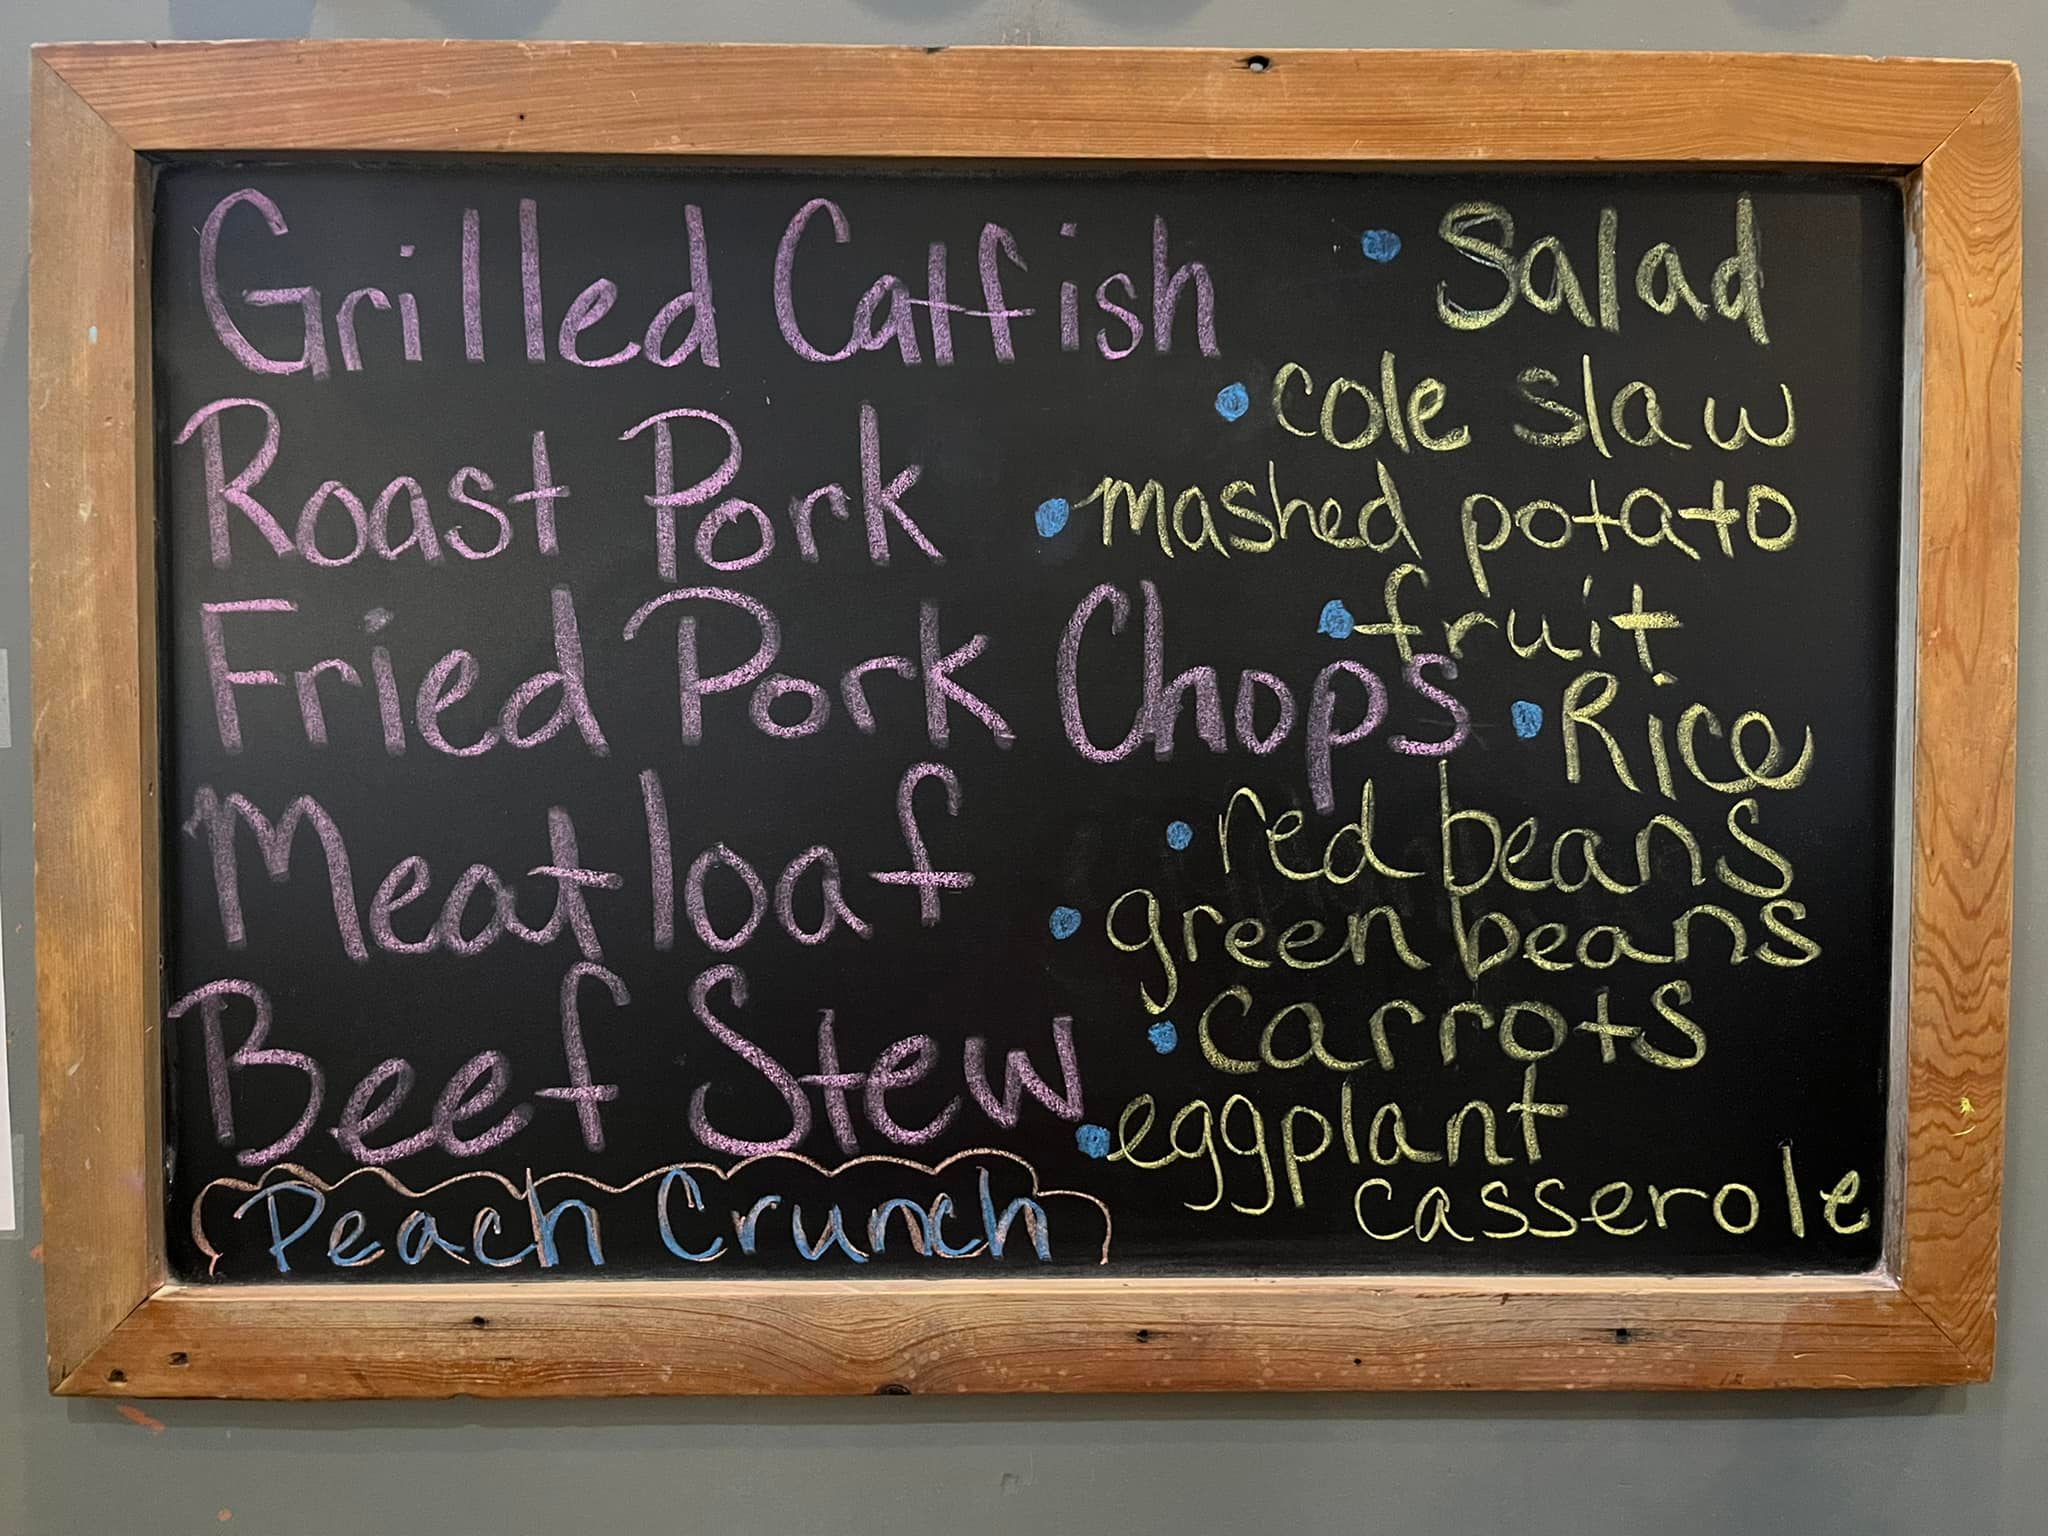 Grilled Catfish
Roast Pork
Fried Pork Chops
Meatloaf
Beef Stew
Peach Crunch
• Salad
• cole slaw
• mashed potato
• fruit
• Rice
• red beans
• green beans
• carrots
• eggplant
casserole